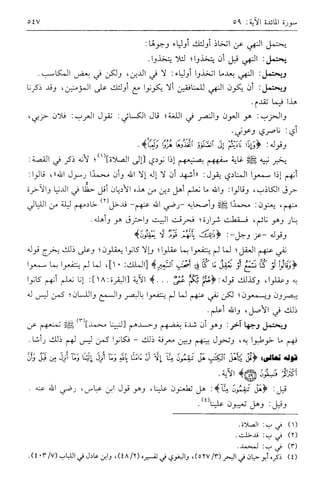 سورة المائدة الآية: ٥٩ ٥٤٧
يحتمل النهي عن اتخاذ أولئك أولياء وجوهًا:
يحتمل: النهي قبل أن يتخذوا؛ لئلا يتخذوا.
ويحتمل: النهي بعدما اتخذوا أولياء: لا في الدين، ولكن في بعض المكاسب.
ويحتمل: أن يكون النهي للمنافقين ألا يكونوا مع أولئك على المؤمنين، وقد ذكرنا
هذا فيما تقدم.
والحزب: هو العون والنصر في اللغة؛ قال الكسائي: تقول العرب: فلان حزبي،
أي: ناصري وعوني.
وقوله: ﴿وَإِذَا نَادَيْتُمْ إِلَى الصَّلَوٰةِ اتَّخَذُوهَا هُزُوًا وَلَعِبًا﴾.
يخبر نبيه ﷺ غاية سفههم بصنيعهم إذا نودي [إلى الصلاة](١)؛ لأنه ذكر في القصة:
أنهم إذا سمعوا المنادي يقول: «أشهد أن لا إله إلا الله وأن محمدًا رسول الله»، قالوا:
حرق الكاذب، وقالوا: والله ما نعلم أهل دين من هذه الأديان أقل حظًّا في الدنيا والآخرة
منهم، يعنون: محمدًا ﷺ وأصحابه -رضي الله عنهم- فدخل(٢) خادمهم ليلة من الليالي
بنار وهو نائم، فسقطت شرارة؛ فحرقت البيت واحترق هو وأهله.
وقوله -عز وجل-: ﴿ذَٰلِكَ بِأَنَّهُمْ قَوْمٌ لَّا يَعْقِلُونَ﴾
نفي عنهم العقل؛ لما لم ينتفعوا بما عقلوا؛ وإلا كانوا يعقلون؛ وعلى ذلك يخرج قوله
﴿وَقَالُوا لَوْ كُنَّا نَسْمَعُ أَوْ نَعْقِلُ مَا كُنَّا فِي أَصْحَابِ السَّعِيرِ﴾ [الملك: ١٠]، لما لم ينتفعوا بما سمعوا
به وعقلوا، وكذلك قوله: ﴿صُمٌّ بُكْمٌ عُمْيٌ ...﴾ الآية [البقرة: ١٨]: إنا نعلم أنهم كانوا
يبصرون ويسمعون؛ لكن نفي عنهم لما لم ينتفعوا بالبصر والسمع واللسان؛ كمن ليس له
ذلك في الأصل، والله أعلم.
ويحتمل وجها آخر: وهو أن شدة بغضهم وحسدهم [لنبينا محمد](٣) ﷺ تمنعهم عن
فهم ما خوطبوا به، وتحول بينهم وبين معرفة ذلك - فكانوا كمن ليس لهم ذلك رأسًا.
قوله تعالى: ﴿قُلْ يَا أَهْلَ الْكِتَابِ هَلْ تَنقِمُونَ مِنَّا إِلَّا أَنْ آمَنَّا بِاللَّهِ وَمَا أُنزِلَ إِلَيْنَا وَمَا أُنزِلَ مِن قَبْلُ وَأَنَّ
أَكْثَرَكُمْ فَاسِقُونَ ٥٩﴾ الآية.
قيل: ﴿هَلْ تَنقِمُونَ مِنَّا﴾: هل تطعنون علينا، وهو قول ابن عباس، رضي الله عنه.
وقيل: وهل تعيبون علينا(٤).
(١) في ب: الصلاة.
(٢) في ب: فدخلت.
(٣) في ب: لمحمد.
(٤) ذكره أبو حيان في البحر (٥٢٧/٣)، والبغوي في تفسيره (٤٨/٢)، وابن عادل في اللباب (٤٠٣/٧).